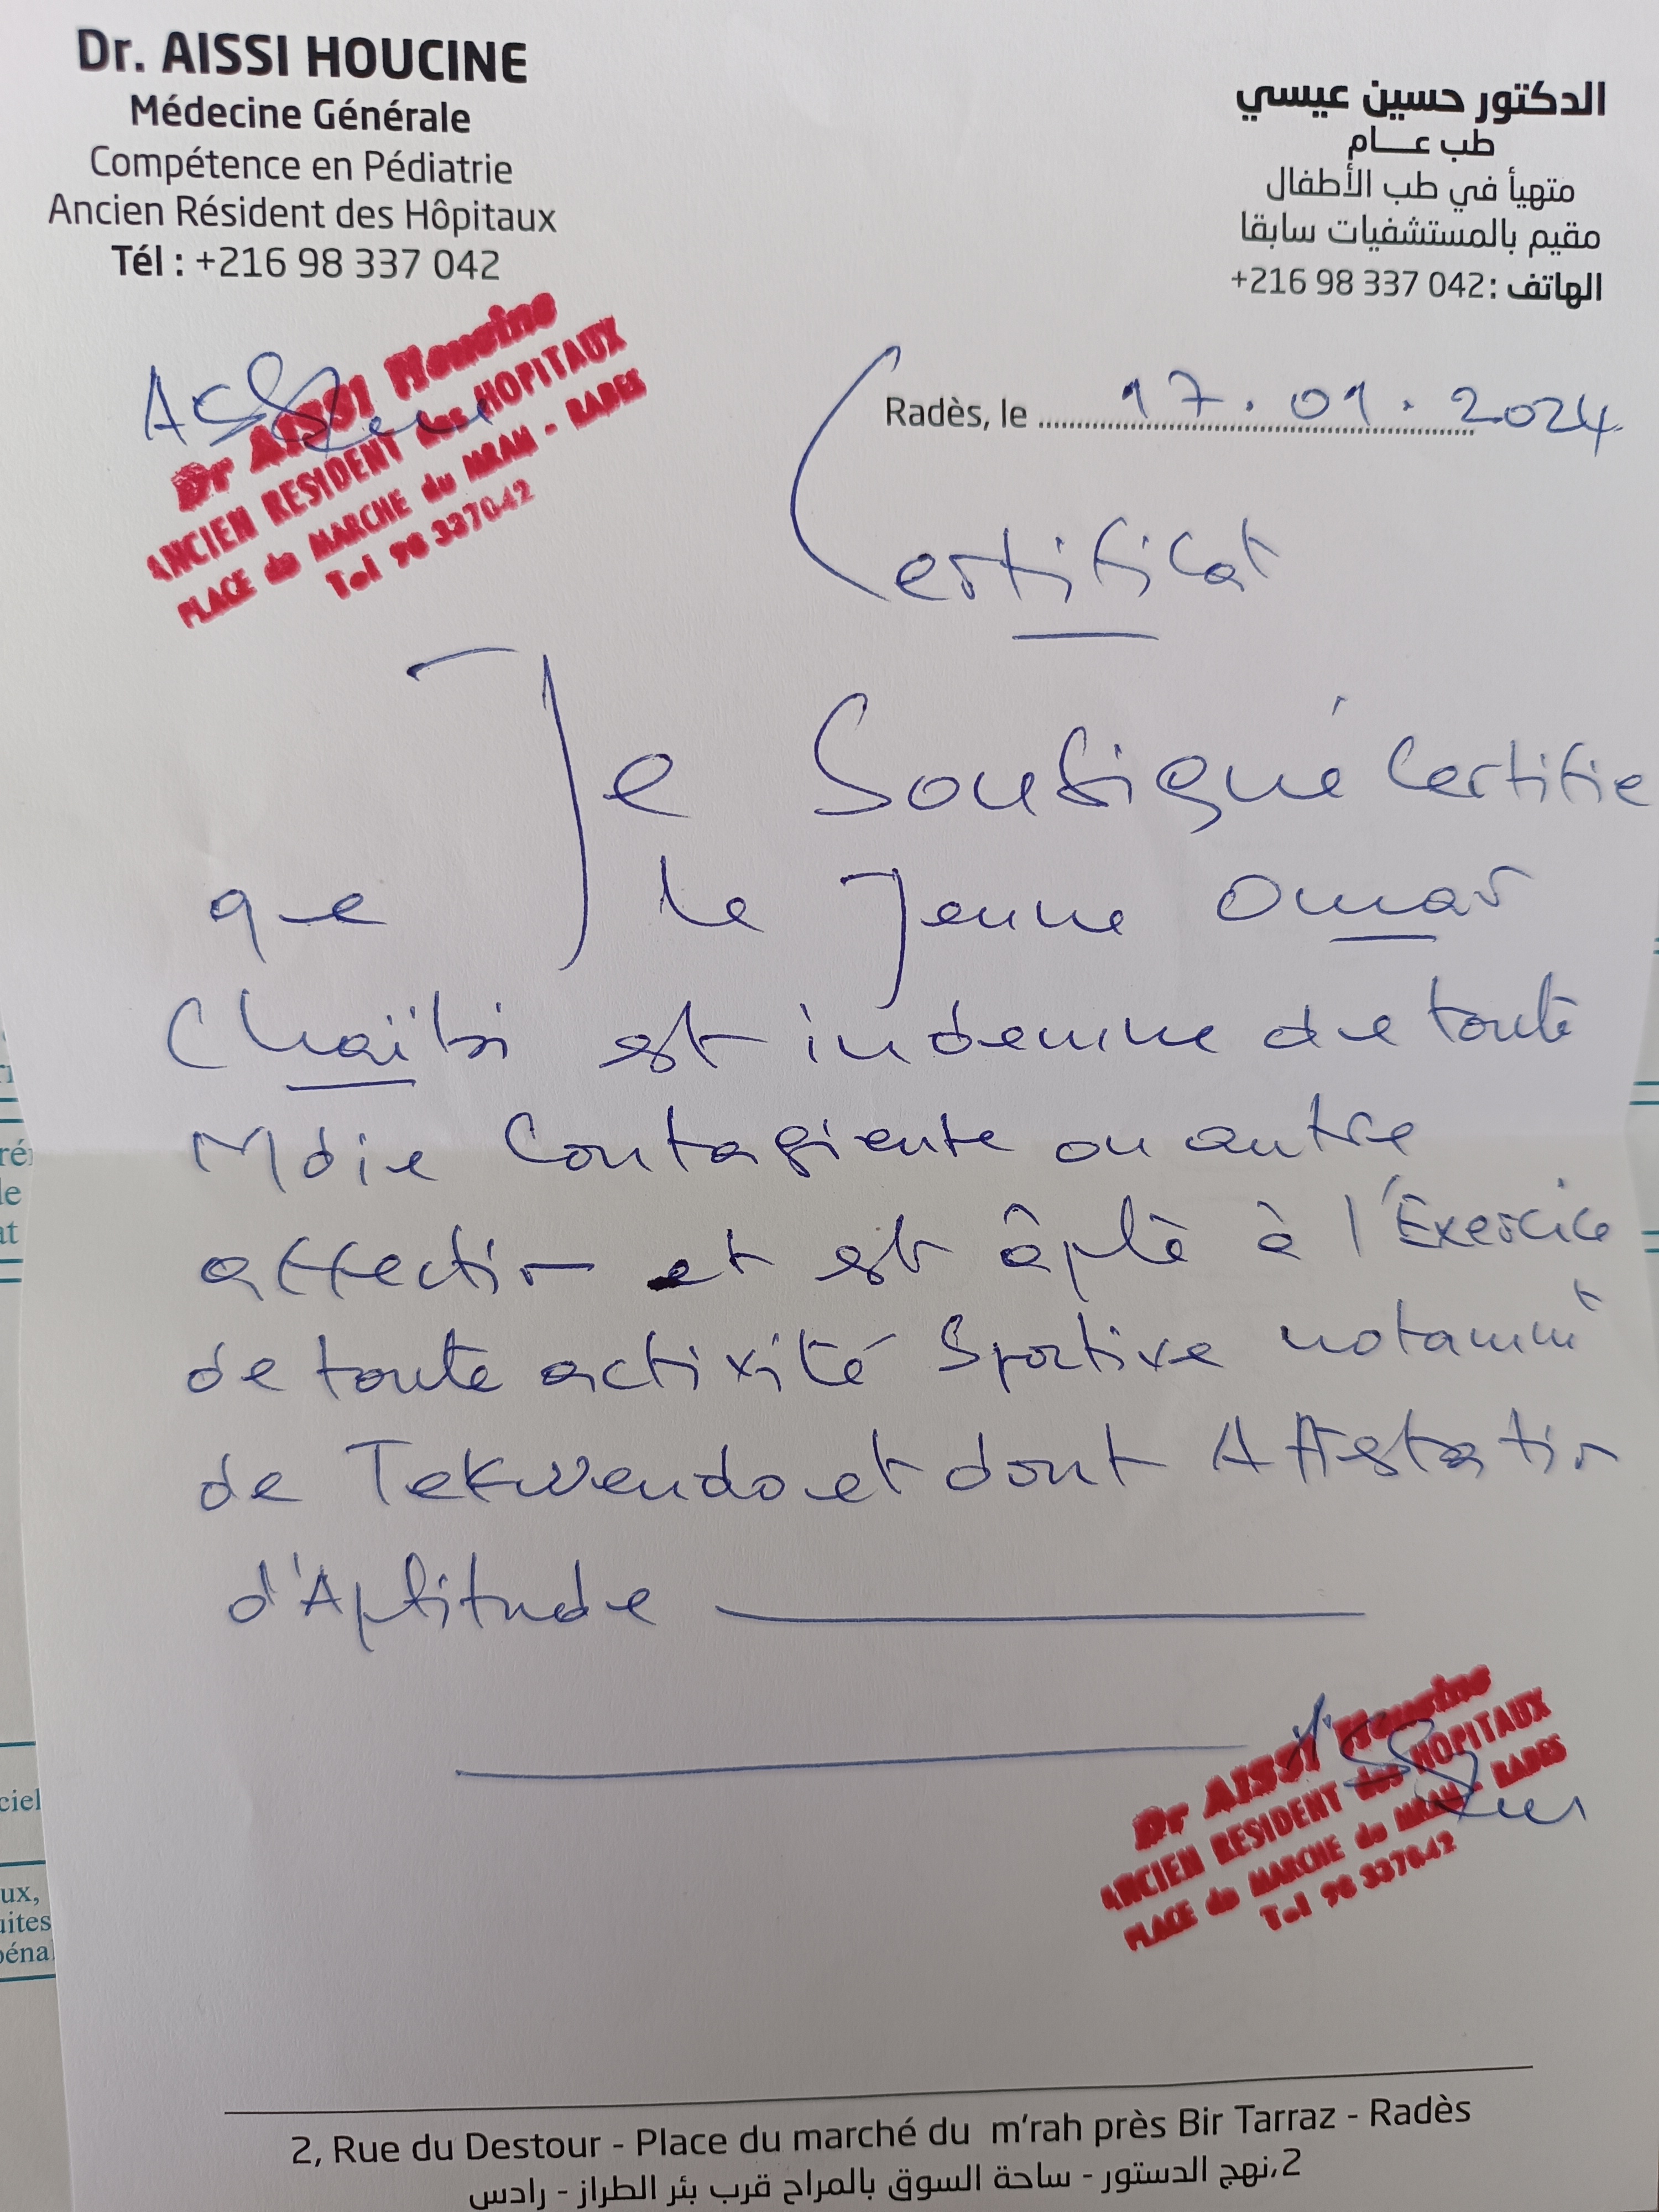 Dr. AISSI HOUCINE
Médecine Générale
Compétence en Pédiatrie
Ancien Résident des Hôpitaux
Tél : +216 98 337 042
الدكتور حسين عيسي
طب عــام
متهيأ في طب الأطفال
مقيم بالمستشفيات سابقا
الهاتف : 042 337 98 216+
Dr AISSI Houcine
ANCIEN RESIDENT des HOPITAUX
PLACE du MARCHE du MRAH - RADES
Tel 98 337042
Radès, le 17.01.2024
Certificat
Je Sousigné Certifie
que le Jeune Omar
Chaïbi est indemne de toute
Mdie Contagiente ou autre
affection et est âpte à l'Exercice
de toute activité Sportive notammt
de Tekwendo et dont Attestation
d'Aptitude
Dr AISSI Houcine
ANCIEN RESIDENT des HOPITAUX
PLACE du MARCHE du MRAH - RADES
Tel 98 337042
2, Rue du Destour - Place du marché du m'rah près Bir Tarraz - Radès
2،نهج الدستور - ساحة السوق بالمراح قرب بئر الطراز - رادس
ré
le
at
ciel
ux,
uites
péna